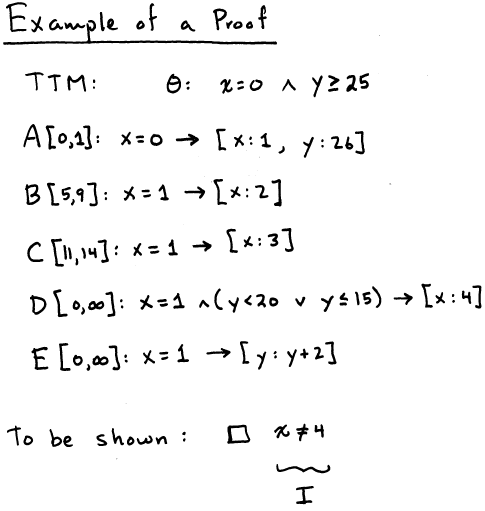 Example of a Proof
TTM: Θ: x=0 ∧ y≥25
A[0,1]: x=0 → [x:1, y:26]
B[5,9]: x=1 → [x:2]
C[11,14]: x=1 → [x:3]
D[0,∞]: x=1 ∧(y<20 ∨ y≤15) → [x:4]
E[0,∞]: x=1 → [y:y+2]
To be shown: □ x≠4
I